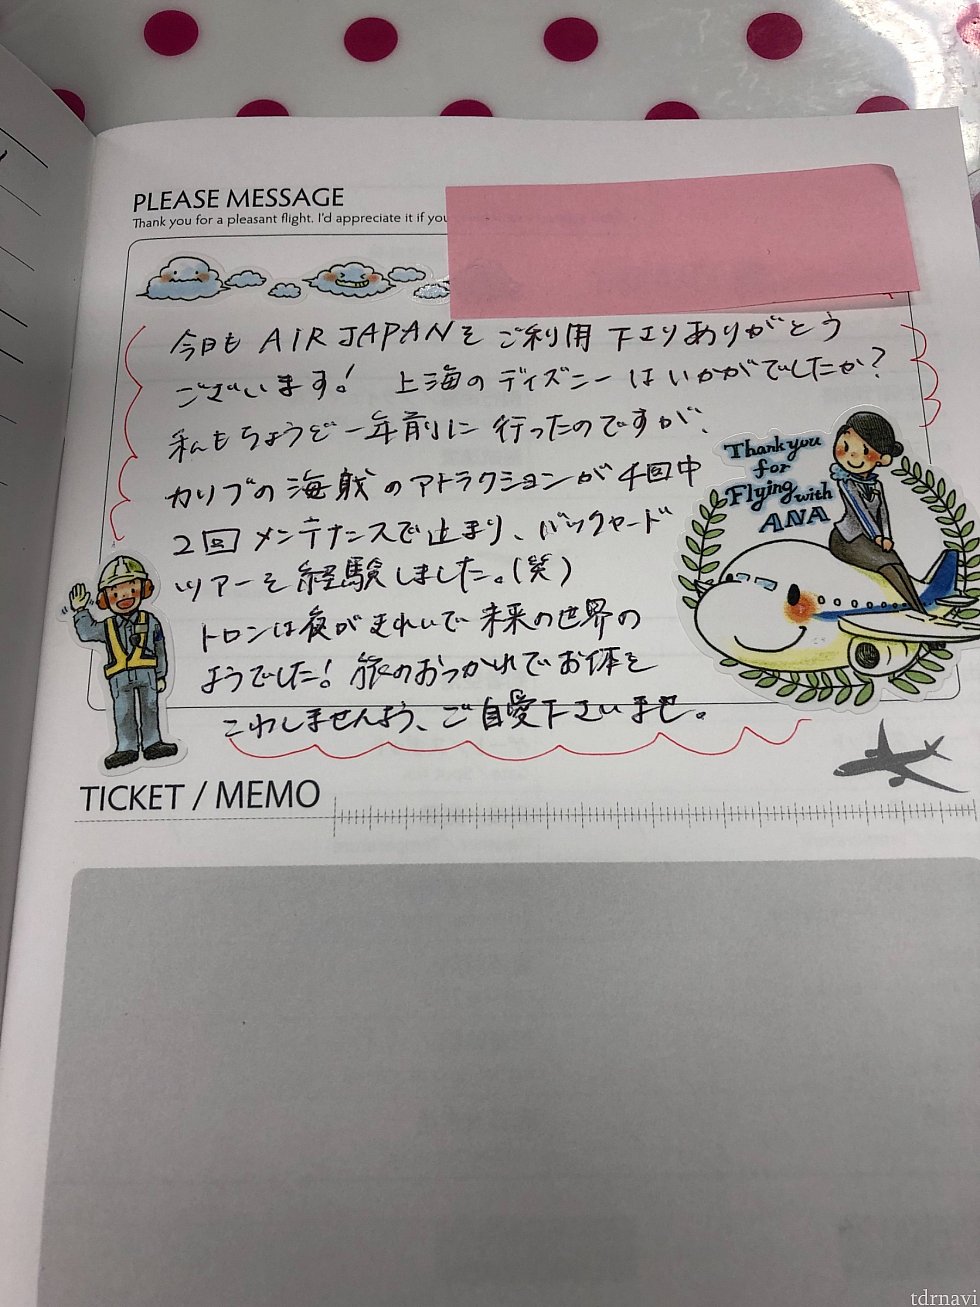 PLEASE MESSAGE
Thank you for a pleasant flight. I'd appreciate it if you
今日も AIR JAPANをご利用下さりありがとう
ございます! 上海のディズニーはいかがでしたか?
私もちょうど一年前に行ったのですが、
カリブの海賊のアトラクションが4回中
2回メンテナンスで止まり、バックヤード
ツアーを経験しました。(笑)
トロンは夜がきれいで未来の世界の
ようでした! 旅のおつかれでお体を
こわしませんよう、ご自愛下さいませ。
Thank you
for
Flying with
ANA
TICKET / MEMO
tdrnavi